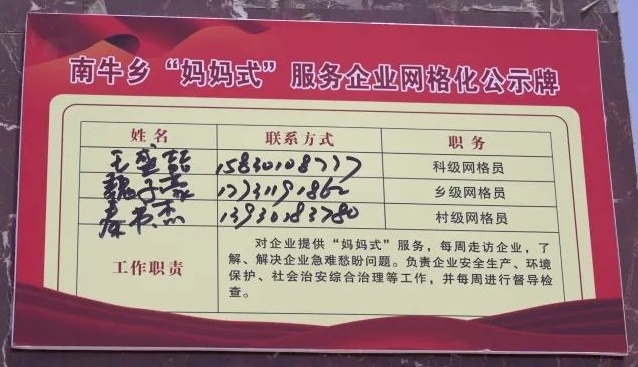 南牛乡“妈妈式”服务企业网格化公示牌
姓名 联系方式 职务
科级网格员
乡级网格员
秦书杰 13930183780 村级网格员
对企业提供“妈妈式”服务，每周走访企业，了
解、解决企业急难愁盼问题。负责企业安全生产、环境
工作职责 保护、社会治安综合治理等工作，并每周进行督导检
查。